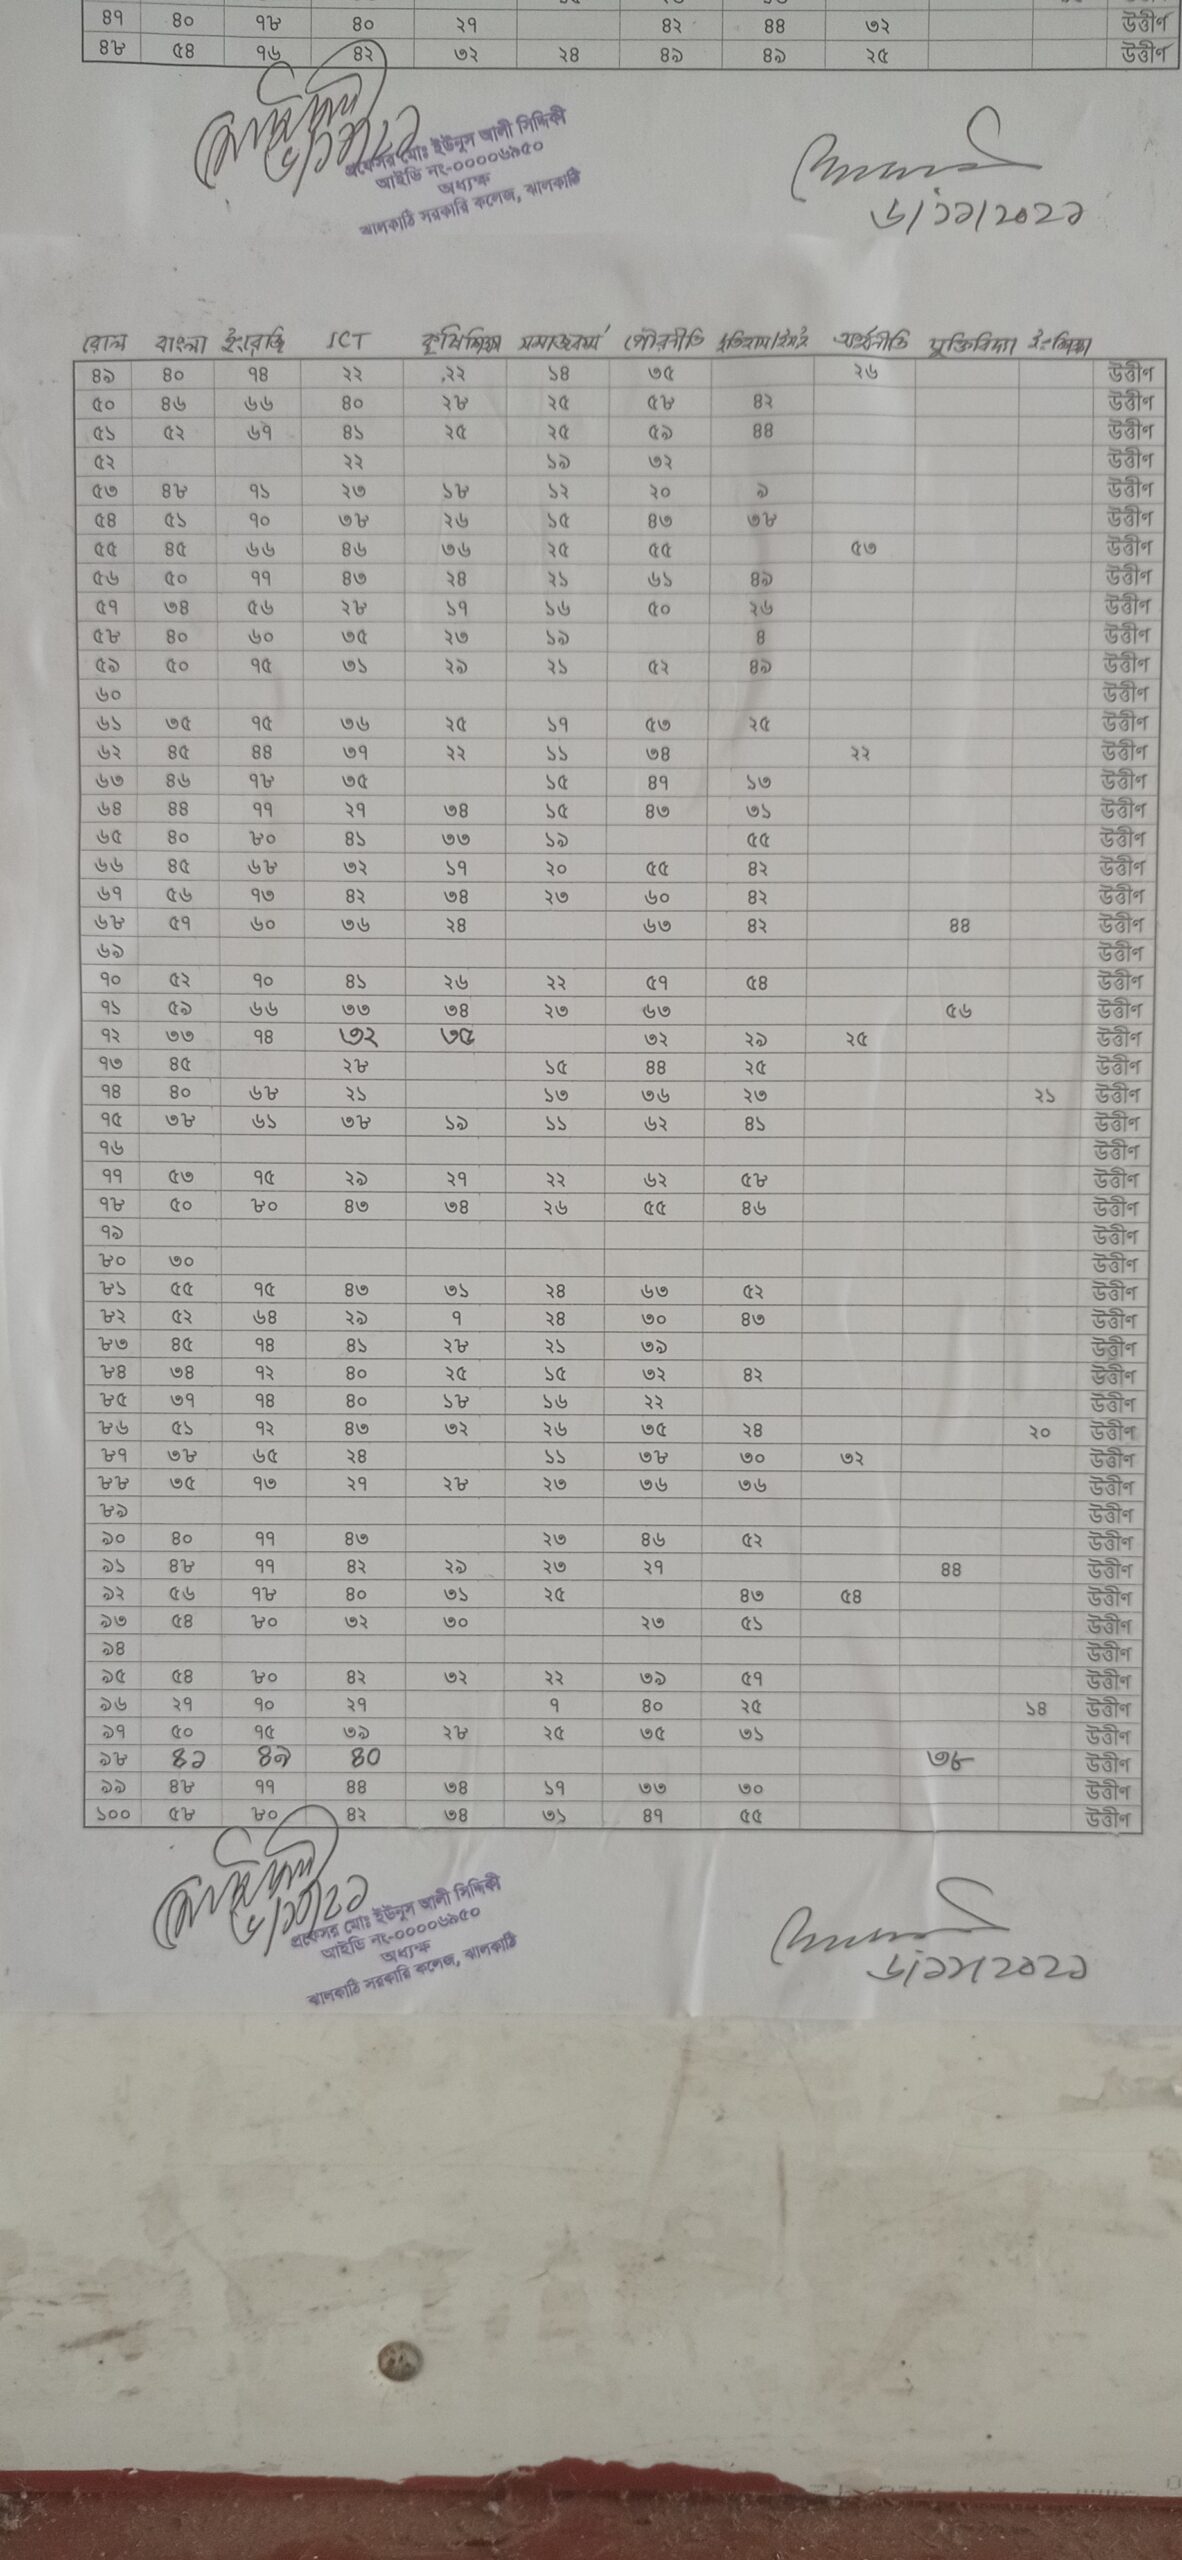 ৪৭ ৪০ ৭৮ ৪০ ২৭ ৪২ ৪৪ ৩২ উত্তীর্ণ
৪৮ ৫৪ ৭৬ ৪২ ৩২ ২৪ ৪৯ ৪৯ ২৫ উত্তীর্ণ
প্রফেসর মোঃ ইউনুস আলী সিদ্দিকী
আইডি নং-০০০০৬৯৫০
অধ্যক্ষ
ঝালকাঠি সরকারি কলেজ, ঝালকাঠি
৬/১১/২০২১
রোল বাংলা ইংরেজি ICT কৃষিশিক্ষা সমাজকর্ম পৌরনীতি অর্থনীতি যুক্তিবিদ্যা ই:শিক্ষা
৪৯ ৪০ ৭৪ ২২ ২২ ১৪ ৩৫ ২৬ উত্তীর্ণ
৫০ ৪৬ ৬৬ ৪০ ২৮ ২৫ ৫৮ ৪২ উত্তীর্ণ
৫১ ৫২ ৬৭ ৪১ ২৫ ২৫ ৫৯ ৪৪ উত্তীর্ণ
৫২ ২২ ১৯ ৩২ উত্তীর্ণ
৫৩ ৪৮ ৭১ ২৩ ১৮ ১২ ২০ ৯ উত্তীর্ণ
৫৪ ৫১ ৭০ ৩৮ ২৬ ১৫ ৪৩ ৩৮ উত্তীর্ণ
৫৫ ৪৫ ৬৬ ৪৬ ৩৬ ২৫ ৫৫ ৫৩ উত্তীর্ণ
৫৬ ৫০ ৭৭ ৪৩ ২৪ ২১ ৬১ ৪৯ উত্তীর্ণ
৫৭ ৩৪ ৫৬ ২৮ ১৭ ১৬ ৫০ ২৬ উত্তীর্ণ
৫৮ ৪০ ৬০ ৩৫ ২৩ ১৯ ৪ উত্তীর্ণ
৫৯ ৫০ ৭৫ ৩১ ২৯ ২১ ৫২ ৪৯ উত্তীর্ণ
৬০ উত্তীর্ণ
৬১ ৩৫ ৭৫ ৩৬ ২৫ ১৭ ৫৩ ২৫ উত্তীর্ণ
৬২ ৪৫ ৪৪ ৩৭ ২২ ১১ ৩৪ ২২ উত্তীর্ণ
৬৩ ৪৬ ৭৮ ৩৫ ১৫ ৪৭ ১৩ উত্তীর্ণ
৬৪ ৪৪ ৭৭ ২৭ ৩৪ ১৫ ৪৩ ৩১ উত্তীর্ণ
৬৫ ৪০ ৮০ ৪১ ৩৩ ১৯ ৫৫ উত্তীর্ণ
৬৬ ৪৫ ৬৮ ৩২ ১৭ ২০ ৫৫ ৪২ উত্তীর্ণ
৬৭ ৫৬ ৭৩ ৪২ ৩৪ ২৩ ৬০ ৪২ উত্তীর্ণ
৬৮ ৫৭ ৬০ ৩৬ ২৪ ৬৩ ৪২ ৪৪ উত্তীর্ণ
৬৯ উত্তীর্ণ
৭০ ৫২ ৭০ ৪১ ২৬ ২২ ৫৭ ৫৪ উত্তীর্ণ
৭১ ৫৯ ৬৬ ৩৩ ৩৪ ২৩ ৬৩ ৫৬ উত্তীর্ণ
৭২ ৩৩ ৭৪ ৩২ ৩৫ ৩২ ২৯ ২৫ উত্তীর্ণ
৭৩ ৪৫ ২৮ ১৫ ৪৪ ২৫ উত্তীর্ণ
৭৪ ৪০ ৬৮ ২১ ১৩ ৩৬ ২৩ ২১ উত্তীর্ণ
৭৫ ৩৮ ৬১ ৩৮ ১৯ ১১ ৬২ ৪১ উত্তীর্ণ
৭৬ উত্তীর্ণ
৭৭ ৫৩ ৭৫ ২৯ ২৭ ২২ ৬২ ৫৮ উত্তীর্ণ
৭৮ ৫০ ৮০ ৪৩ ৩৪ ২৬ ৫৫ ৪৬ উত্তীর্ণ
৭৯ উত্তীর্ণ
৮০ ৩০ উত্তীর্ণ
৮১ ৫৫ ৭৫ ৪৩ ৩১ ২৪ ৬৩ ৫২ উত্তীর্ণ
৮২ ৫২ ৬৪ ২৯ ৭ ২৪ ৩০ ৪৩ উত্তীর্ণ
৮৩ ৪৫ ৭৪ ৪১ ২৮ ২১ ৩৯ উত্তীর্ণ
৮৪ ৩৪ ৭২ ৪০ ২৫ ১৫ ৩২ ৪২ উত্তীর্ণ
৮৫ ৩৭ ৭৪ ৪০ ১৮ ১৬ ২২ উত্তীর্ণ
৮৬ ৫১ ৭২ ৪৩ ৩২ ২৬ ৩৫ ২৪ ২০ উত্তীর্ণ
৮৭ ৩৮ ৬৫ ২৪ ১১ ৩৮ ৩০ ৩২ উত্তীর্ণ
৮৮ ৩৫ ৭৩ ২৭ ২৮ ২৩ ৩৬ ৩৬ উত্তীর্ণ
৮৯ উত্তীর্ণ
৯০ ৪০ ৭৭ ৪৩ ২৩ ৪৬ ৫২ উত্তীর্ণ
৯১ ৪৮ ৭৭ ৪২ ২৯ ২৩ ২৭ ৪৪ উত্তীর্ণ
৯২ ৫৬ ৭৮ ৪০ ৩১ ২৫ ৪৩ ৫৪ উত্তীর্ণ
৯৩ ৫৪ ৮০ ৩২ ৩০ ২৩ ৫১ উত্তীর্ণ
৯৪ উত্তীর্ণ
৯৫ ৫৪ ৮০ ৪২ ৩২ ২২ ৩৯ ৫৭ উত্তীর্ণ
৯৬ ২৭ ৭০ ২৭ ৭ ৪০ ২৫ ১৪ উত্তীর্ণ
৯৭ ৫০ ৭৫ ৩৯ ২৮ ২৫ ৩৫ ৩১ উত্তীর্ণ
৯৮ ৪৯ ৪৯ ৪০ ৩৮ উত্তীর্ণ
৯৯ ৪৮ ৭৭ ৪৪ ৩৪ ১৭ ৩৩ ৩০ উত্তীর্ণ
১০০ ৫৮ ৮০ ৪২ ৩৪ ৩১ ৪৭ ৫৫ উত্তীর্ণ
প্রফেসর মোঃ ইউনুস আলী সিদ্দিকী
আইডি নং-০০০০৬৯৫০
অধ্যক্ষ
ঝালকাঠি সরকারি কলেজ, ঝালকাঠি
৬/১১/২০২১